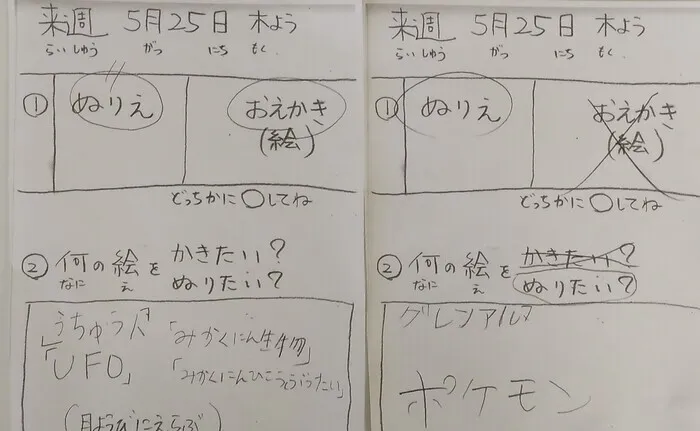 来週 5月25日 木よう
らいしゅう がつ にち もく
① ぬりえ おえかき
(絵)
どっちかに○してね
② 何の絵を かきたい?
なに え ぬりたい?
うちゅう人 「みかくにん生物」
「UFO」 「みかくにんひこう
(月ようびにえらぶ)
来週 5月25日 木よう
らいしゅう がつ にち もく
① ぬりえ おえかき
(絵)
どっちかに○してね
② 何の絵を かきたい?
なに え ぬりたい?
グレンアルマ
ポケモン